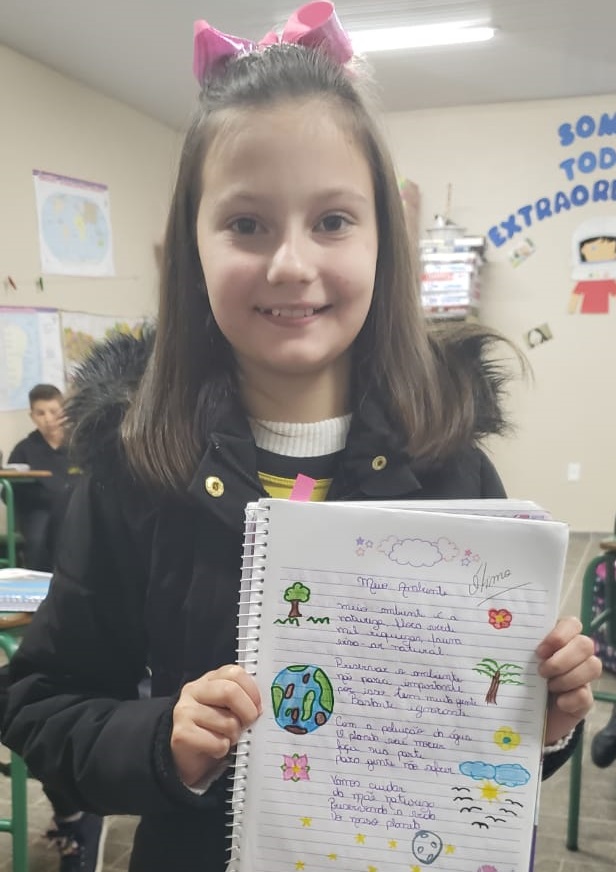 SOM
TOD
EXTRAOR
Meio Ambiente
Ótimo
Meio ambiente é a
natureza, flora verde
mil riquezas, fauna
ar natural
Preservar o ambiente
não parece importante
por isso tem muita gente
Bastante ignorante.
Com a poluição da água
O planeta vai morrer
faça sua parte
para gente não sofrer
Vamos cuidar
da mãe natureza
Preservando a vida
Do nosso planeta